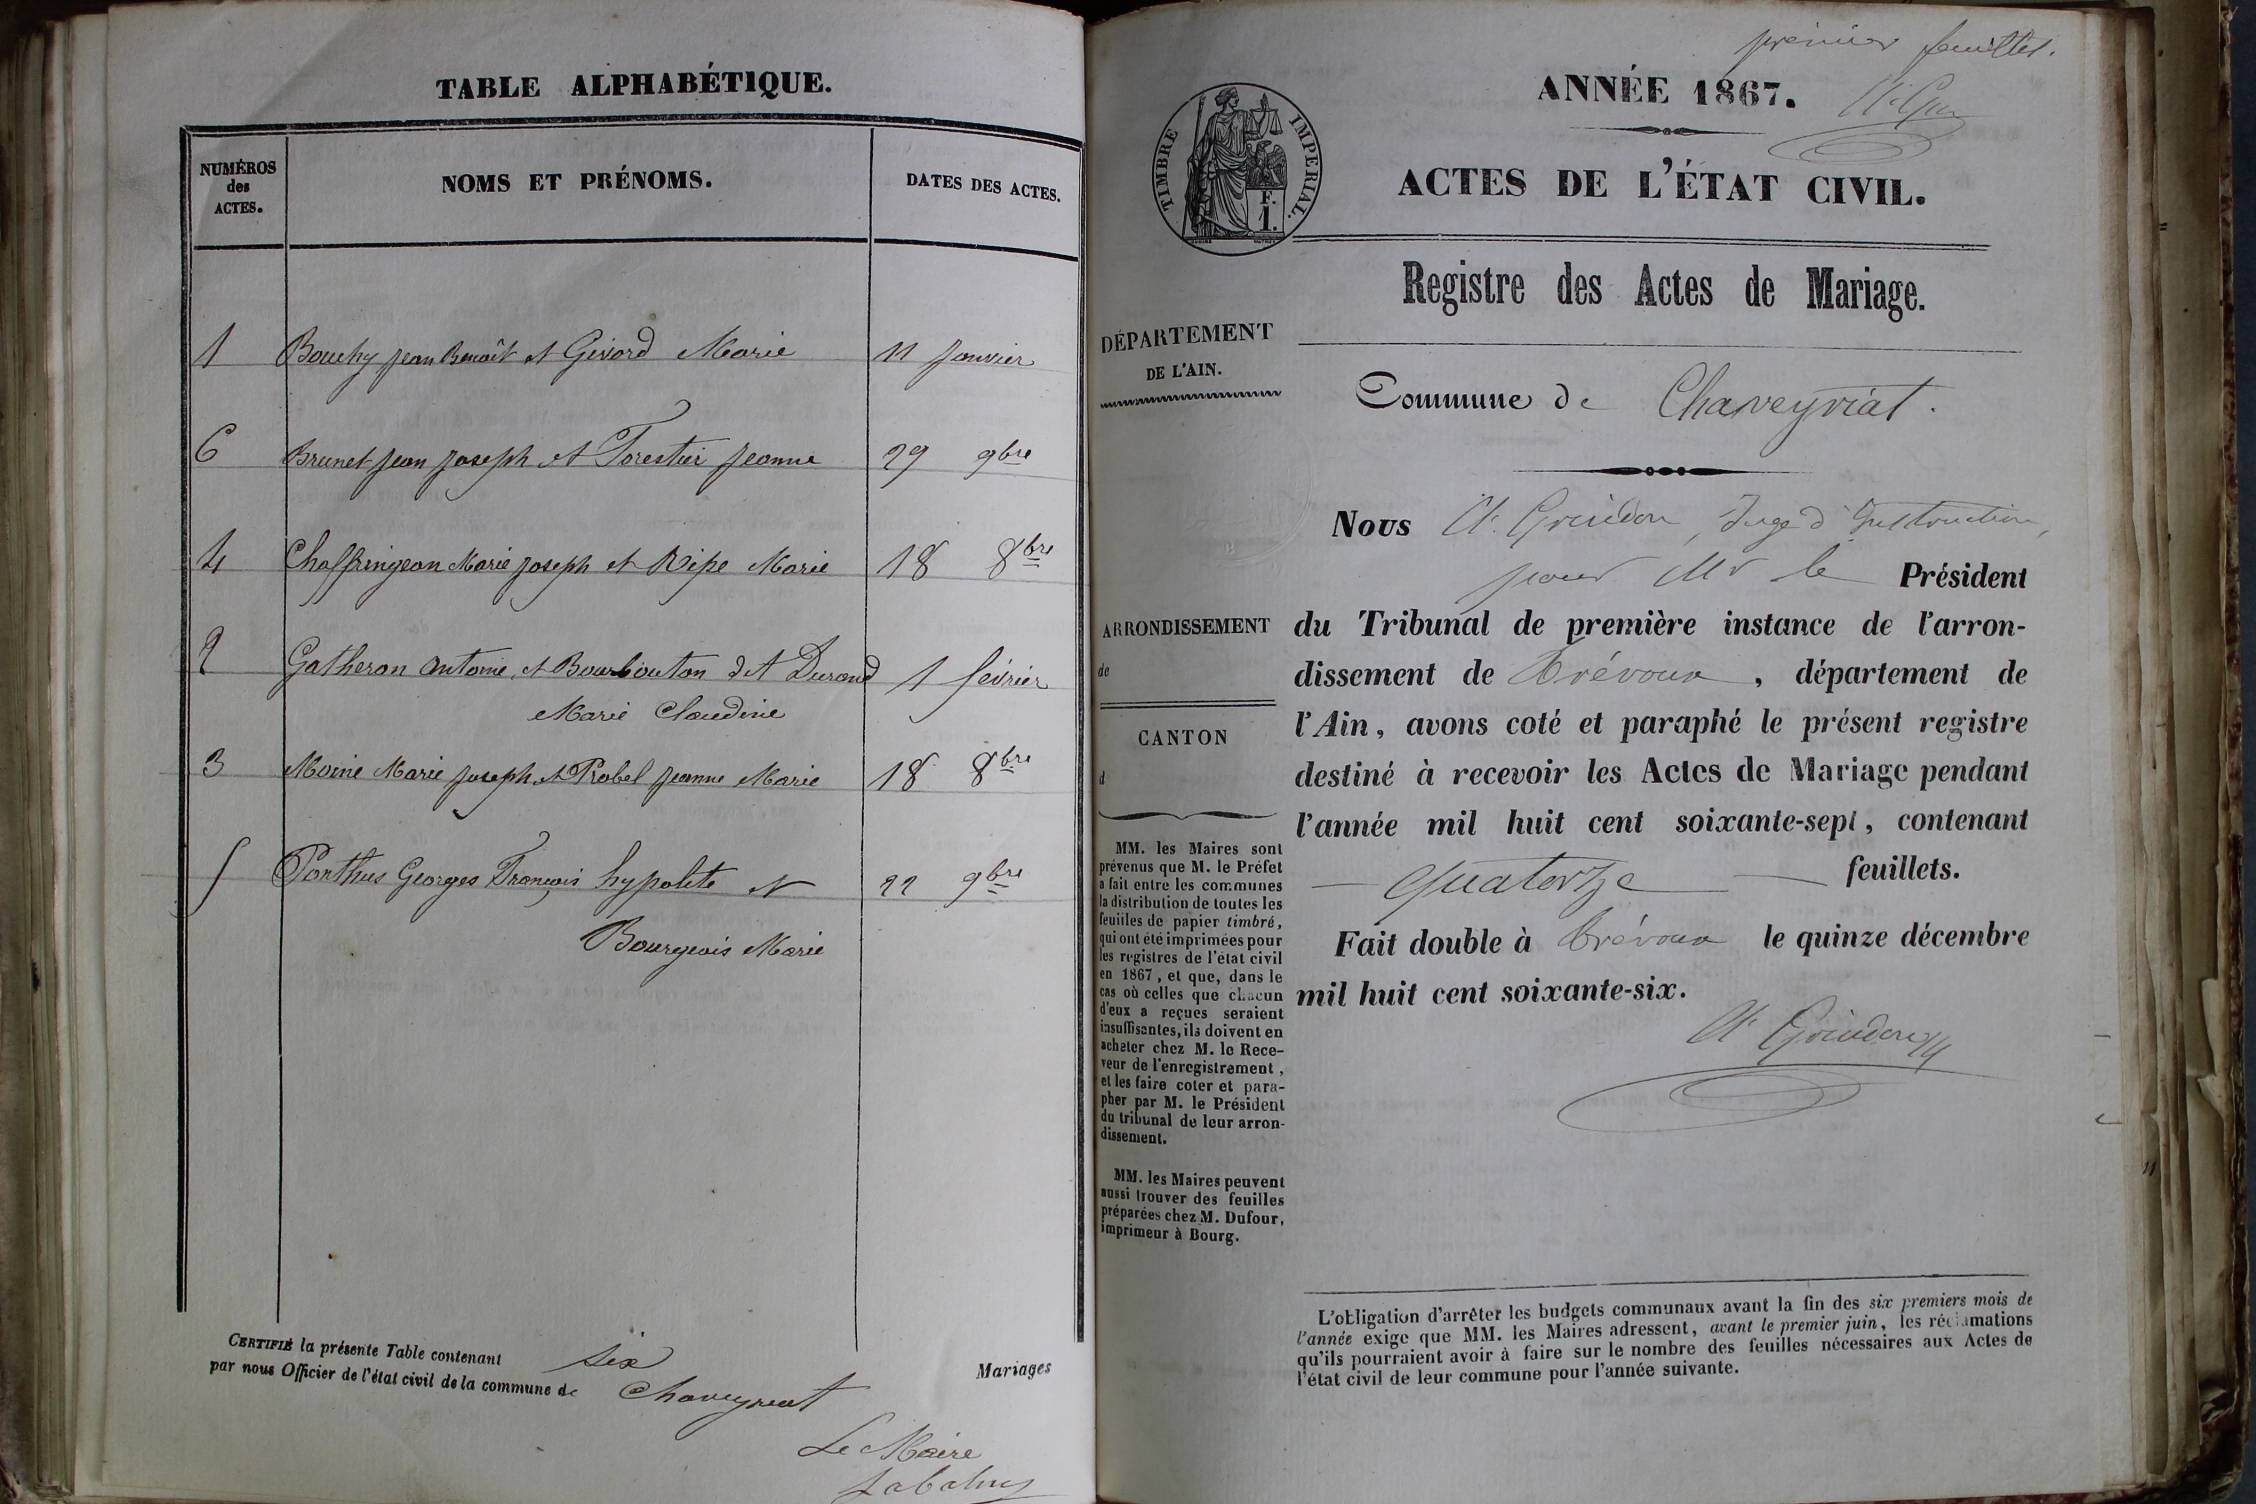 TABLE ALPHABÉTIQUE.
NUMÉROS
des
ACTES.
NOMS ET PRÉNOMS.
DATES DES ACTES.
1 Bouchy Jean Benoît et Givord Marie 11 Janvier
6 Brunet Jean Joseph et Forestier Jeanne 29 9bre
4 Chaffringeon Marie Joseph et Ripe Marie 18 8bre
2 Gatheron Antoine et Bourbouton dit Durand 1 février
Marie Claudine
3 Moine Marie Joseph et Probel Jeanne Marie 18 8bre
5 Ponthus Georges François hypolite et 22 9bre
Bourgeois Marie
CERTIFIÉ la présente Table contenant six Mariages
par nous Officier de l'état civil de la commune de Chaveyriat
Le Maire
premier feuillet.
ANNÉE 1867.
TIMBRE IMPERIAL.
F.
1.
ACTES DE L'ÉTAT CIVIL.
Registre des Actes de Mariage.
DÉPARTEMENT
DE L'AIN.
Commune de Chaveyriat.
Nous Grindon, Juge d'Instruction,
pour Mr le Président
ARRONDISSEMENT
de
CANTON
d
du Tribunal de première instance de l'arron-
dissement de Trévoux, département de
l'Ain, avons coté et paraphé le présent registre
destiné à recevoir les Actes de Mariage pendant
l'année mil huit cent soixante-sept, contenant
quatorze feuillets.
Fait double à Trévoux le quinze décembre
mil huit cent soixante-six.
Grindon
MM. les Maires sont
prévenus que M. le Préfet
a fait entre les communes
la distribution de toutes les
feuilles de papier timbré,
qui ont été imprimées pour
les registres de l'état civil
en 1867, et que, dans le
cas où celles que chacun
d'eux a reçues seraient
insuffisantes, ils doivent en
acheter chez M. le Rece-
veur de l'enregistrement,
et les faire coter et para-
pher par M. le Président
du tribunal de leur arron-
dissement.
MM. les Maires peuvent
aussi trouver des feuilles
préparées chez M. Dufour,
imprimeur à Bourg.
L'obligation d'arrêter les budgets communaux avant la fin des six premiers mois de
l'année exige que MM. les Maires adressent, avant le premier juin, les réclamations
qu'ils pourraient avoir à faire sur le nombre des feuilles nécessaires aux Actes de
l'état civil de leur commune pour l'année suivante.